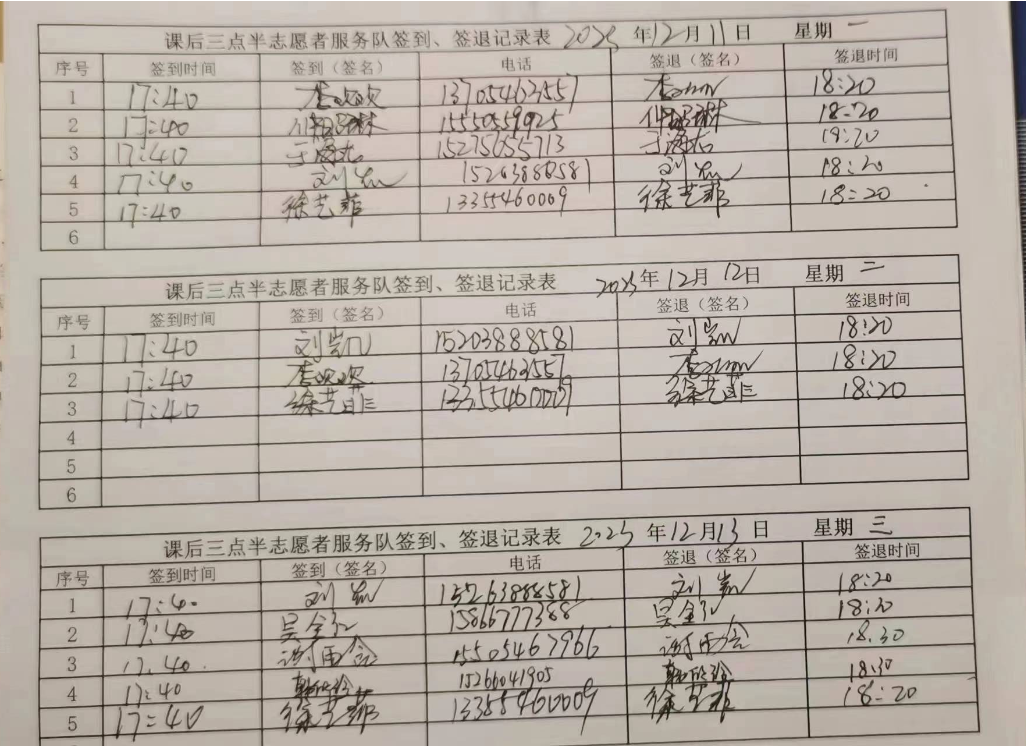 课后三点半志愿者服务队签到、签退记录表 2023年12月11日 星期一
序号 签到时间 签到（签名） 电话 签退（签名） 签退时间
1 17:40 李欢欢 13705463557 18:20
2 17:40 15550559925 18:20
3 17:40 于海燕 15275655713 18:20
4 17:40 刘岩 15263888581 刘岩 18:20
5 17:40 徐艺菲 13355460009 徐艺菲 18:20
6
课后三点半志愿者服务队签到、签退记录表 2023年12月12日 星期二
序号 签到时间 签到（签名） 电话 签退（签名） 签退时间
1 17:40 15203888581 18:20
2 17:40 李欢欢 13705463557 18:20
3 17:40 徐艺菲 13355460009 徐艺菲 18:20
4
5
6
课后三点半志愿者服务队签到、签退记录表 2023年12月13日 星期三
序号 签到时间 签到（签名） 电话 签退（签名） 签退时间
1 17:40 15263888581 18:20
2 17:40 吴全红 15866777388 吴全红 18:20
3 17:40 谢雨会 15505467966 谢雨会 18:30
4 17:40 15266041905 18:30
5 17:40 徐艺菲 13355460009 徐艺菲 18:20